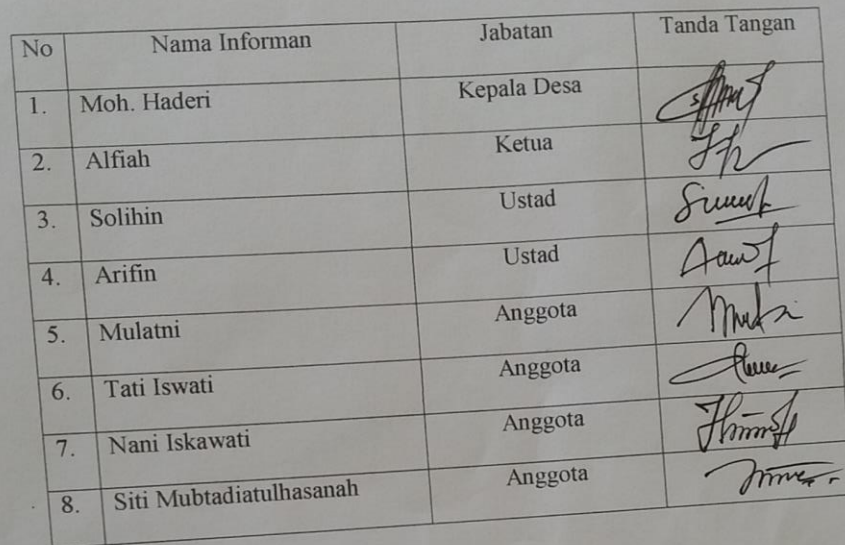 No Nama Informan Jabatan Tanda Tangan
1. Moh. Haderi Kepala Desa
2. Alfiah Ketua
3. Solihin Ustad
4. Arifin Ustad
5. Mulatni Anggota
6. Tati Iswati Anggota
7. Nani Iskawati Anggota
8. Siti Mubtadiatulhasanah Anggota